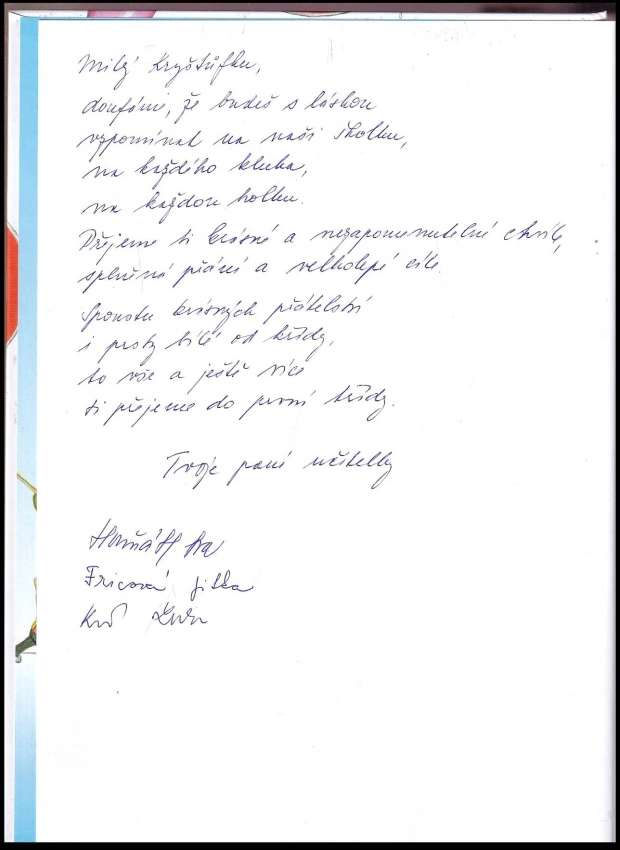 Milý Kryštůfku,
doufáme, že budeš s láskou
vzpomínat na naši školku,
na každého kluka,
na každou holku.
Přejeme ti krásné a nezapomenutelné chvíle,
splněná přání a velkolepé cíle.
Spoustu krásných přátelství
i prsty bílé od křídy,
to vše a ještě více
ti přejeme do první třídy.
Tvoje paní učitelky
Fricová Jitka